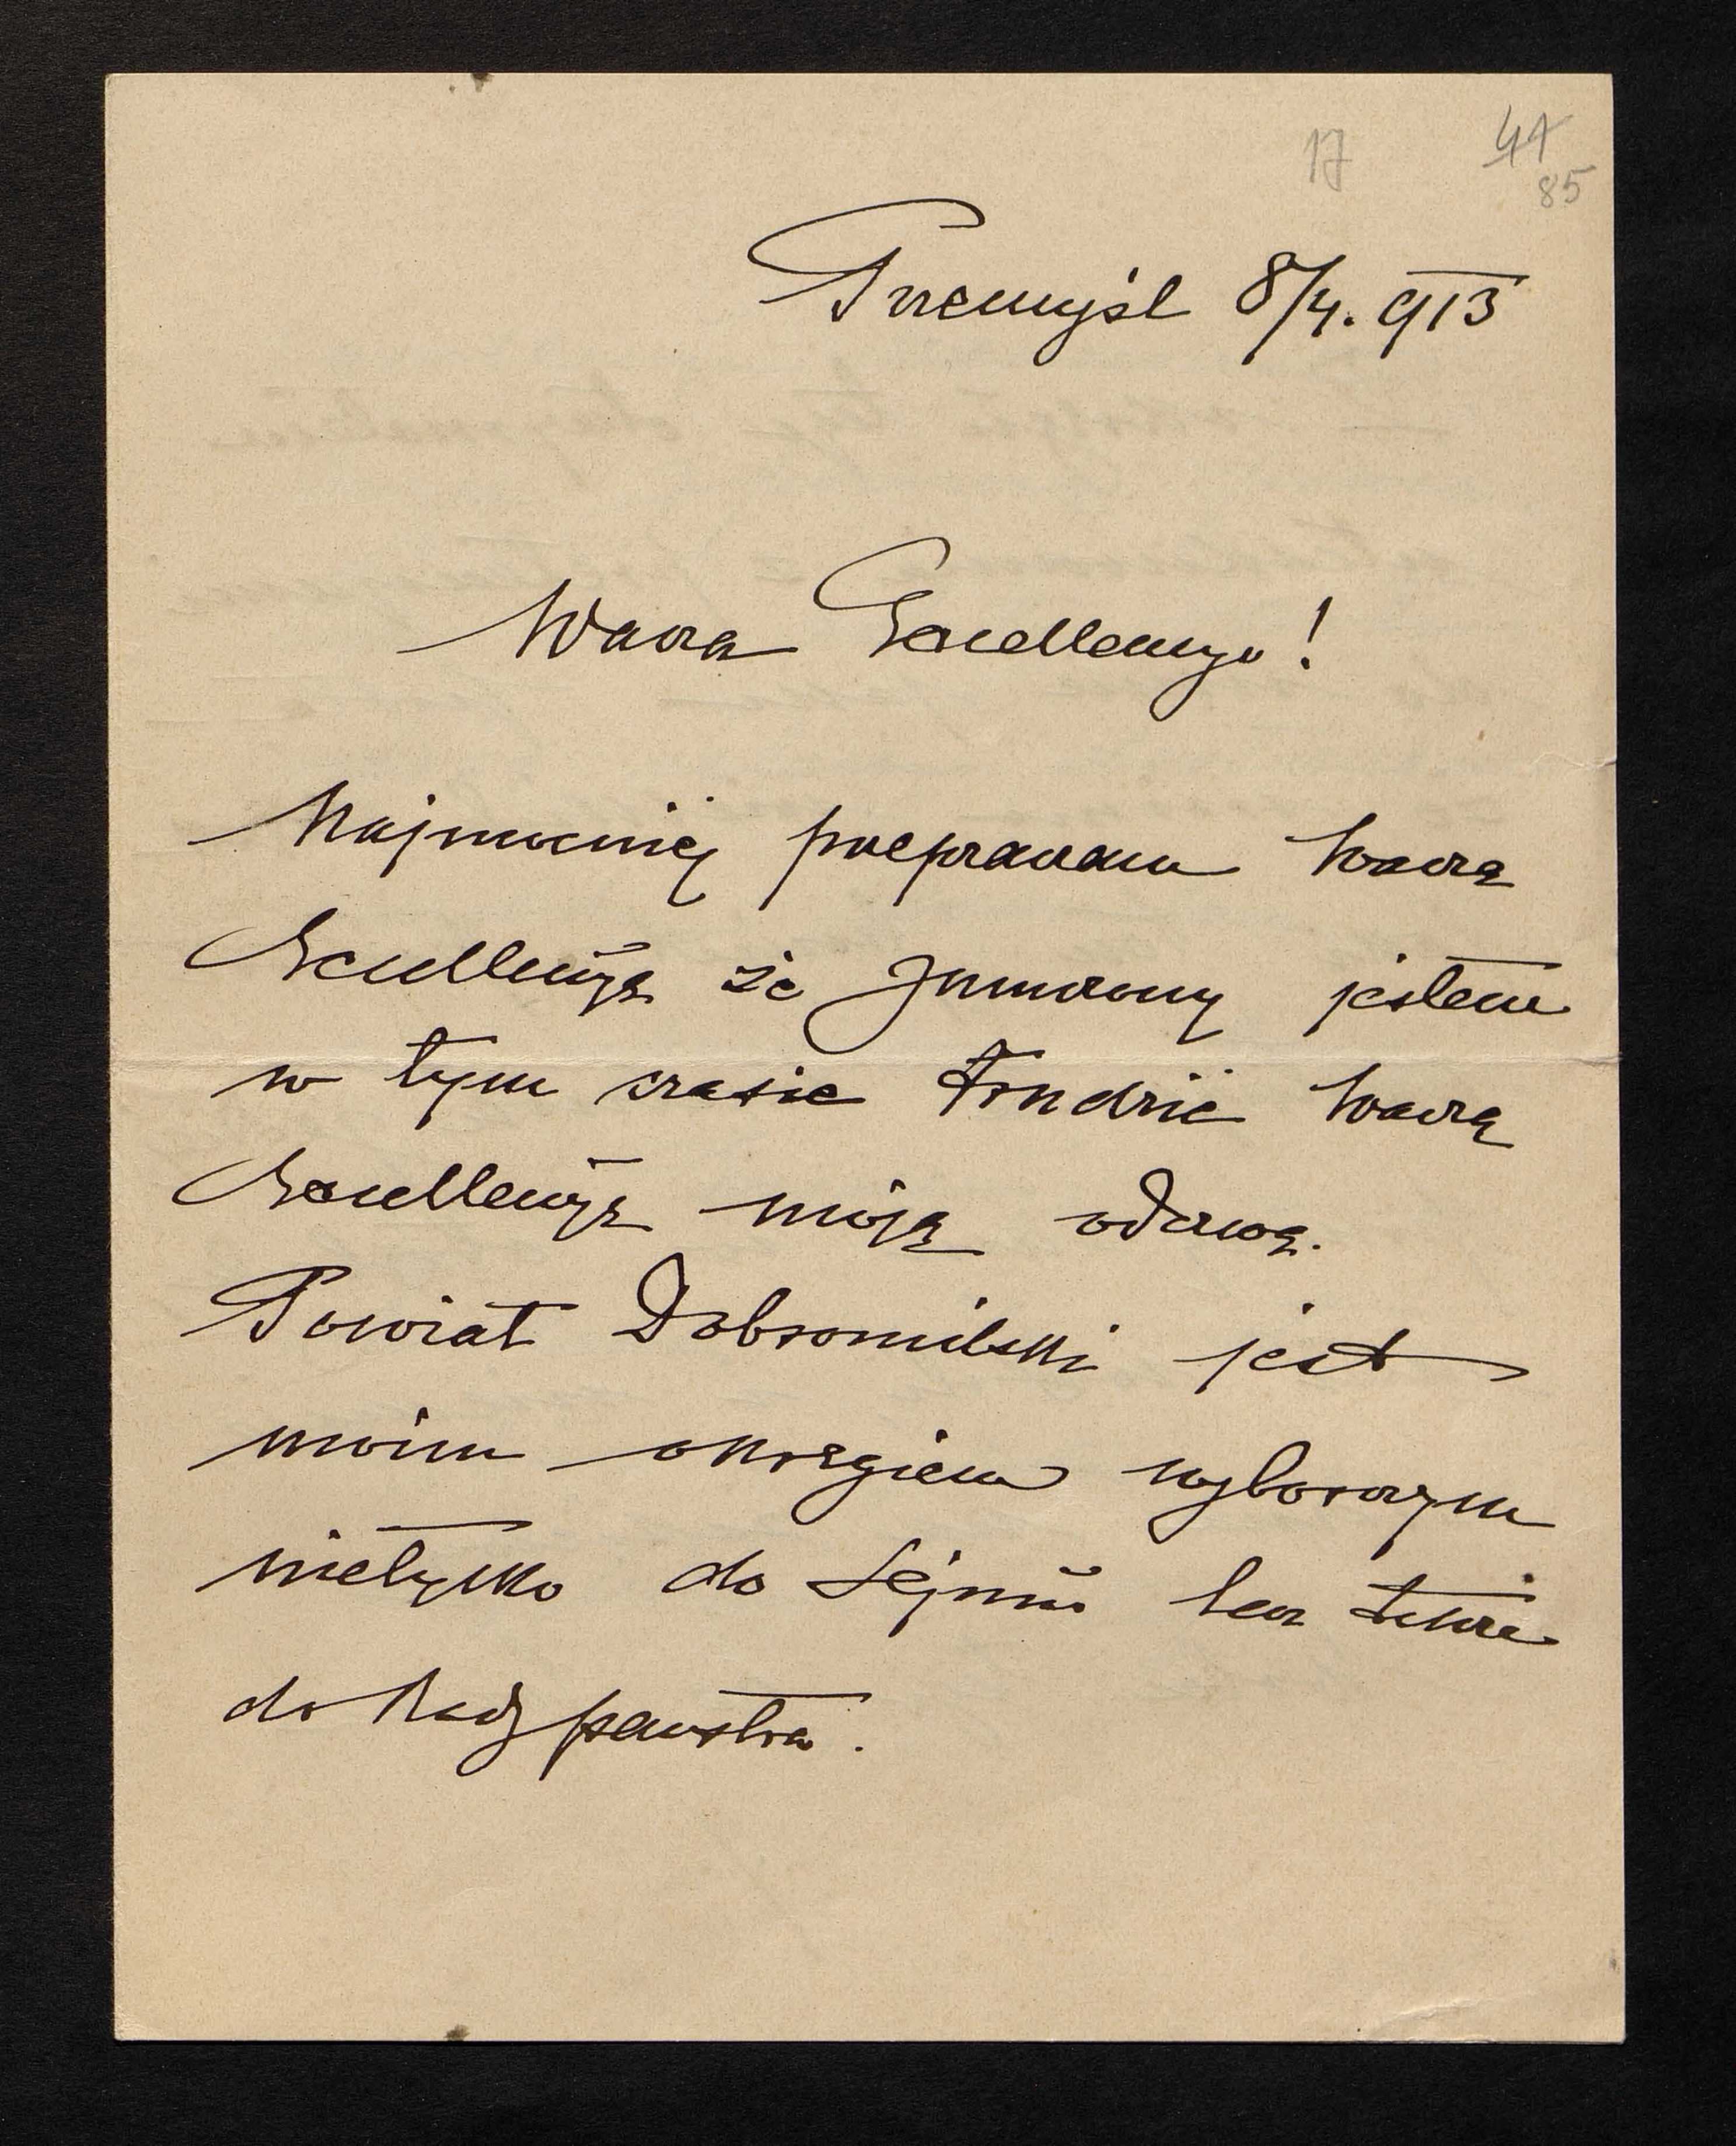 17 41
85
Przemyśl 8/4. 913
Wasza Excellencyo!
Najmocniej przepraszam Waszą
Excellencyę że zmuszony jestem
w tym czasie trudzić Waszą
Excellencyę moją odezwą.
Powiat Dobromilski jest
moim okręgiem wyborczym
nietylko do Sejmu lecz także
do Rady państwa.